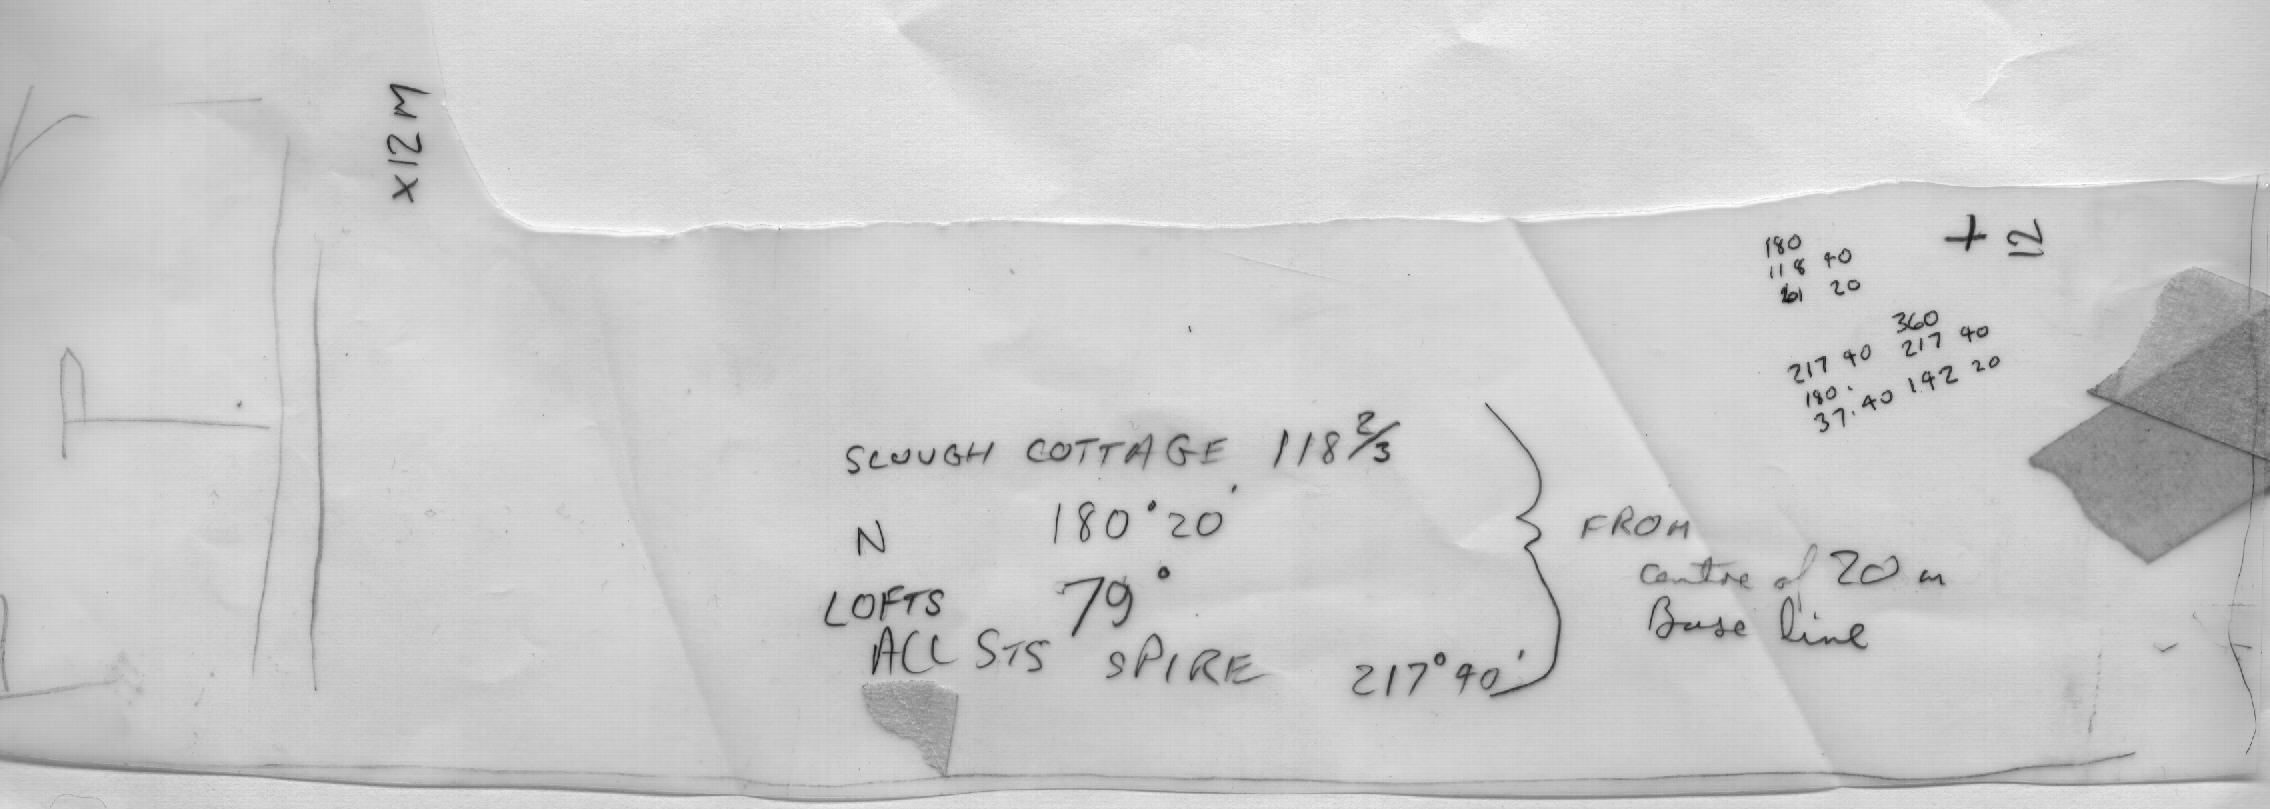 X12M
180
118 40
61 20
+ 12
360
217 40 217 40
180.
37.40 142 20
SLOUGH COTTAGE 118 2/3
N 180°20'
LOFTS 79°
ALL STS SPIRE 217°40'
FROM
centre of 20 m
Base line